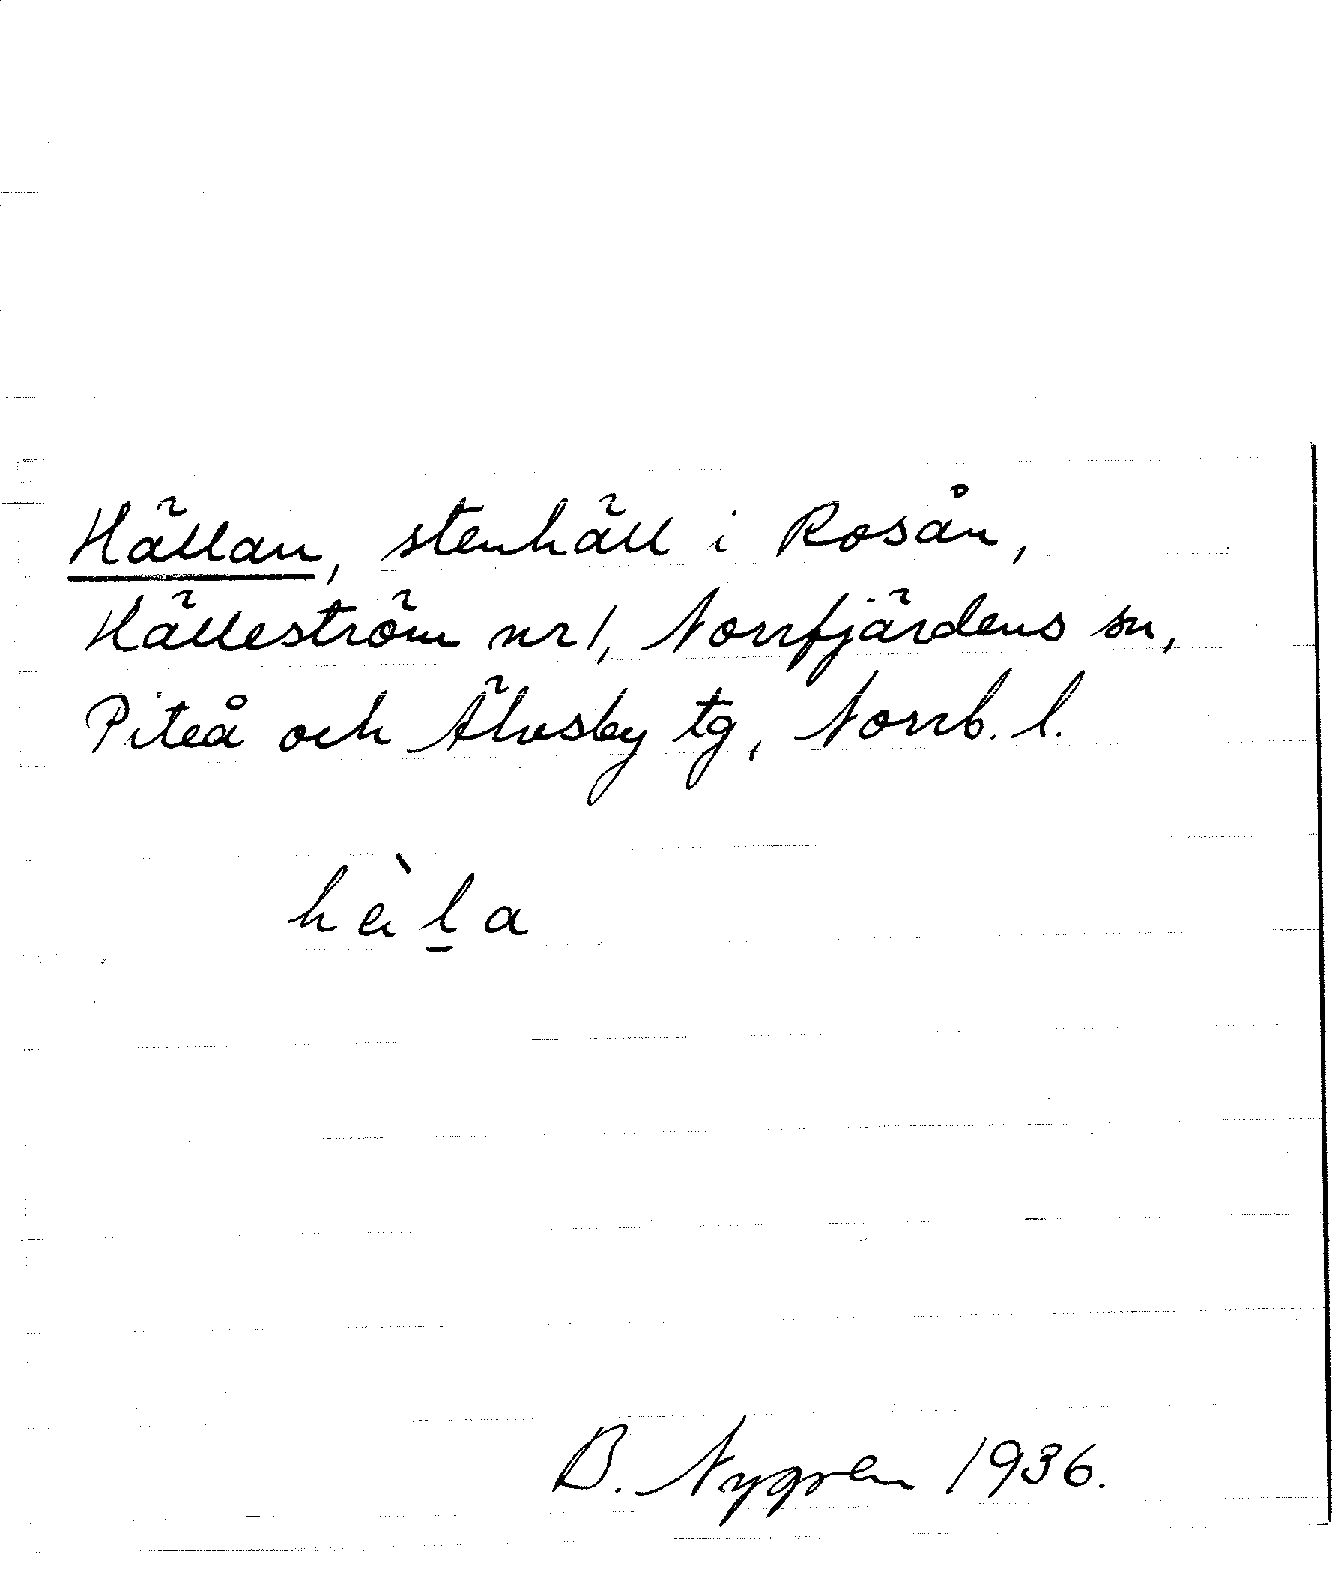 Hällan, stenhäll i Rosån,
Hälleström nr 1, Norrfjärdens sn,
Piteå och Älvsby tg, Norrb. l.
B. Nygren 1936.